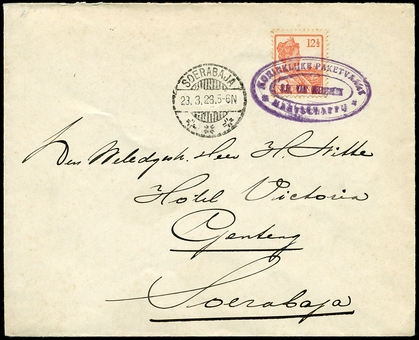 SOERABAJA
23.3.23.5-6N
12½
KONINKLIJKE PAKETVAART
MAATSCHAPPIJ
Den Weledgestr. Heer H.
Hotel Victoria
Genteng
Soerabaja